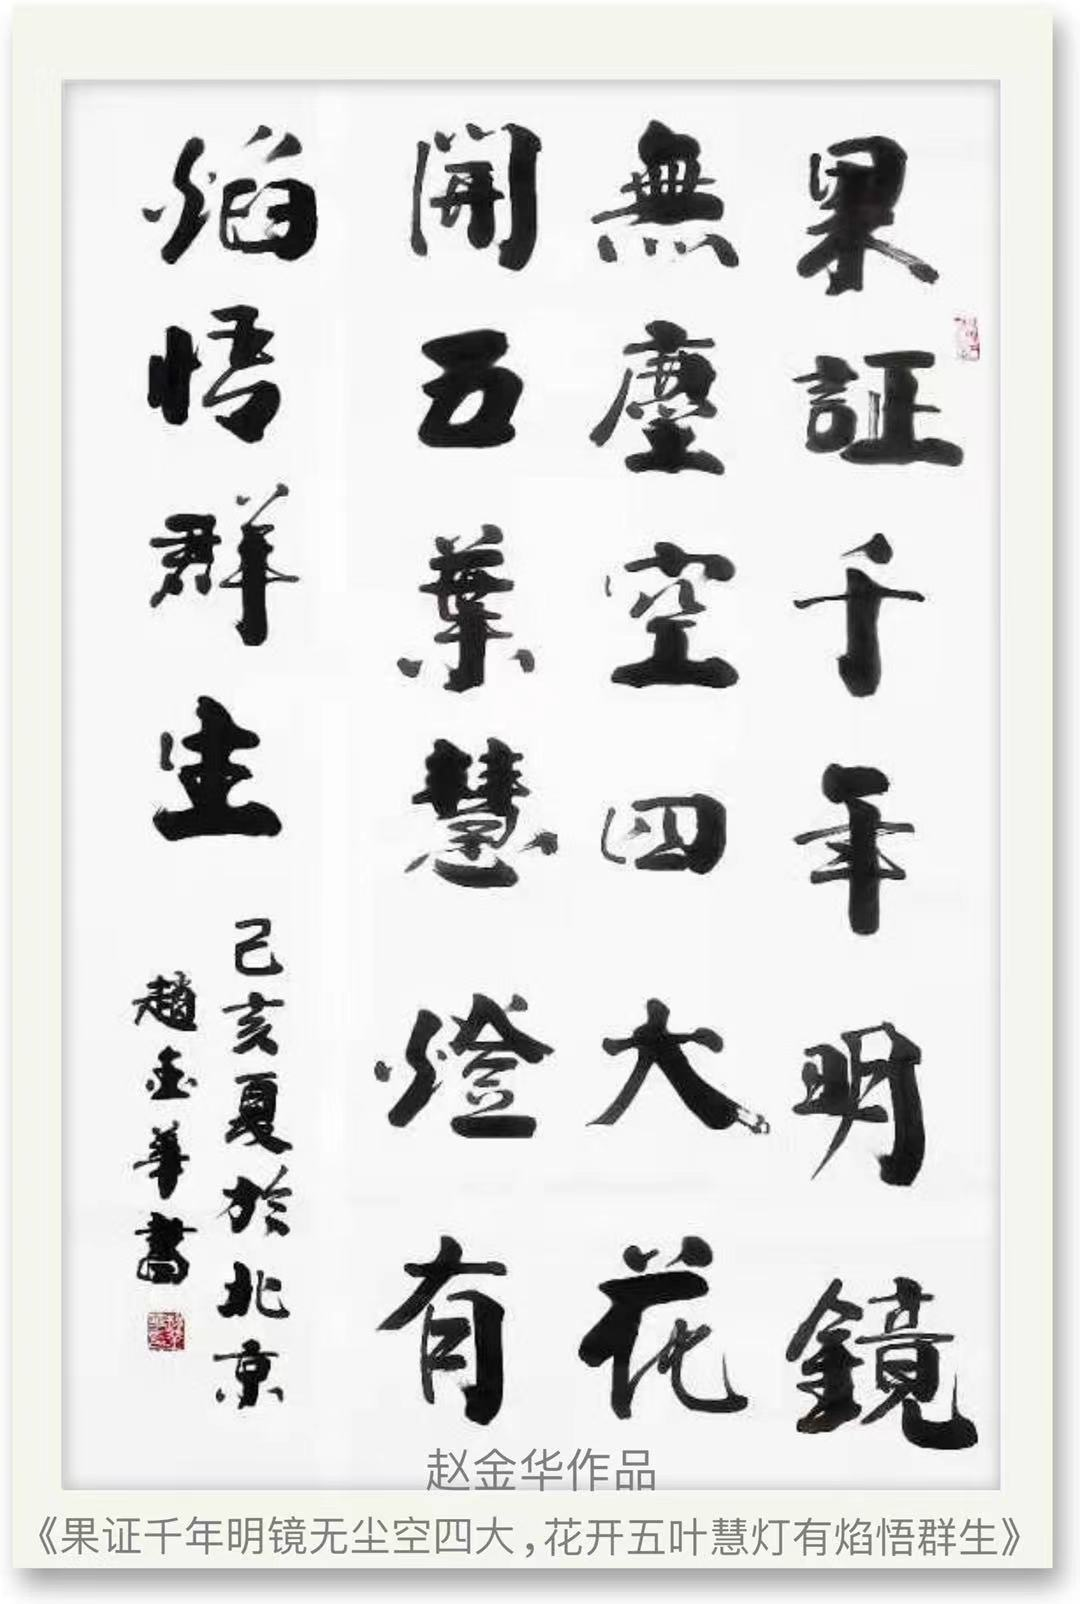 果証千年明鏡
無塵空四大花
開五葉慧燈有
焰悟群生
己亥夏於北京
趙金華書
赵金华作品
《果证千年明镜无尘空四大,花开五叶慧灯有焰悟群生》